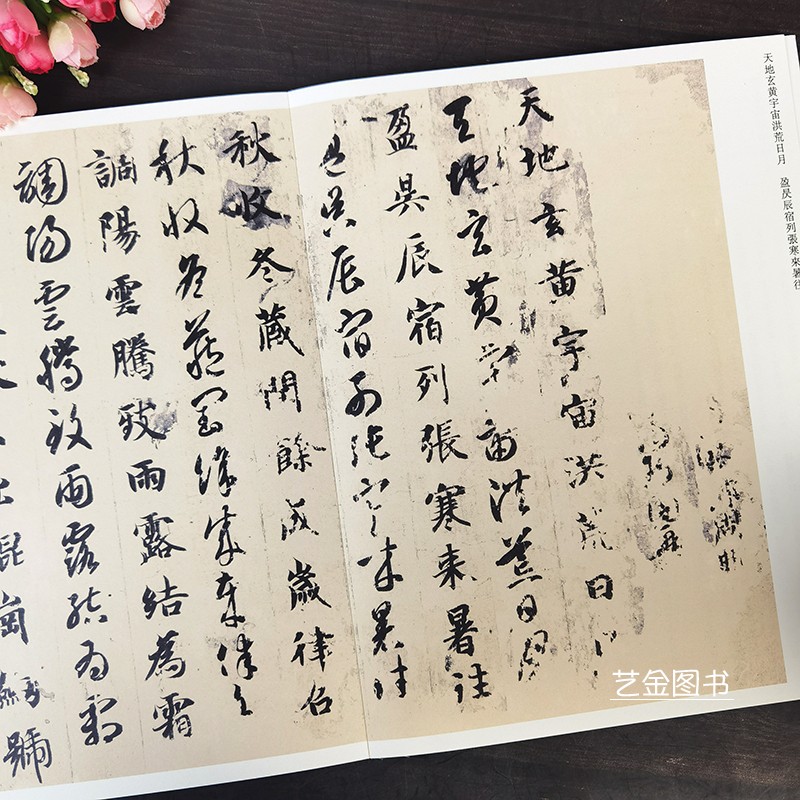 天地玄黄宇宙洪荒日月 盈昃辰宿列張寒來暑往
天地玄黄宇宙洪荒日
天地玄黄宇宙洪荒日月
盈昃辰宿列張寒来暑往
盈昃辰宿列張寒来暑往
秋收冬藏閏餘成歲律吕
秋收冬藏閏餘成歲律吕
調陽雲騰致雨露結為霜
調陽雲騰致雨露結為霜
出崐崗號
艺金图书